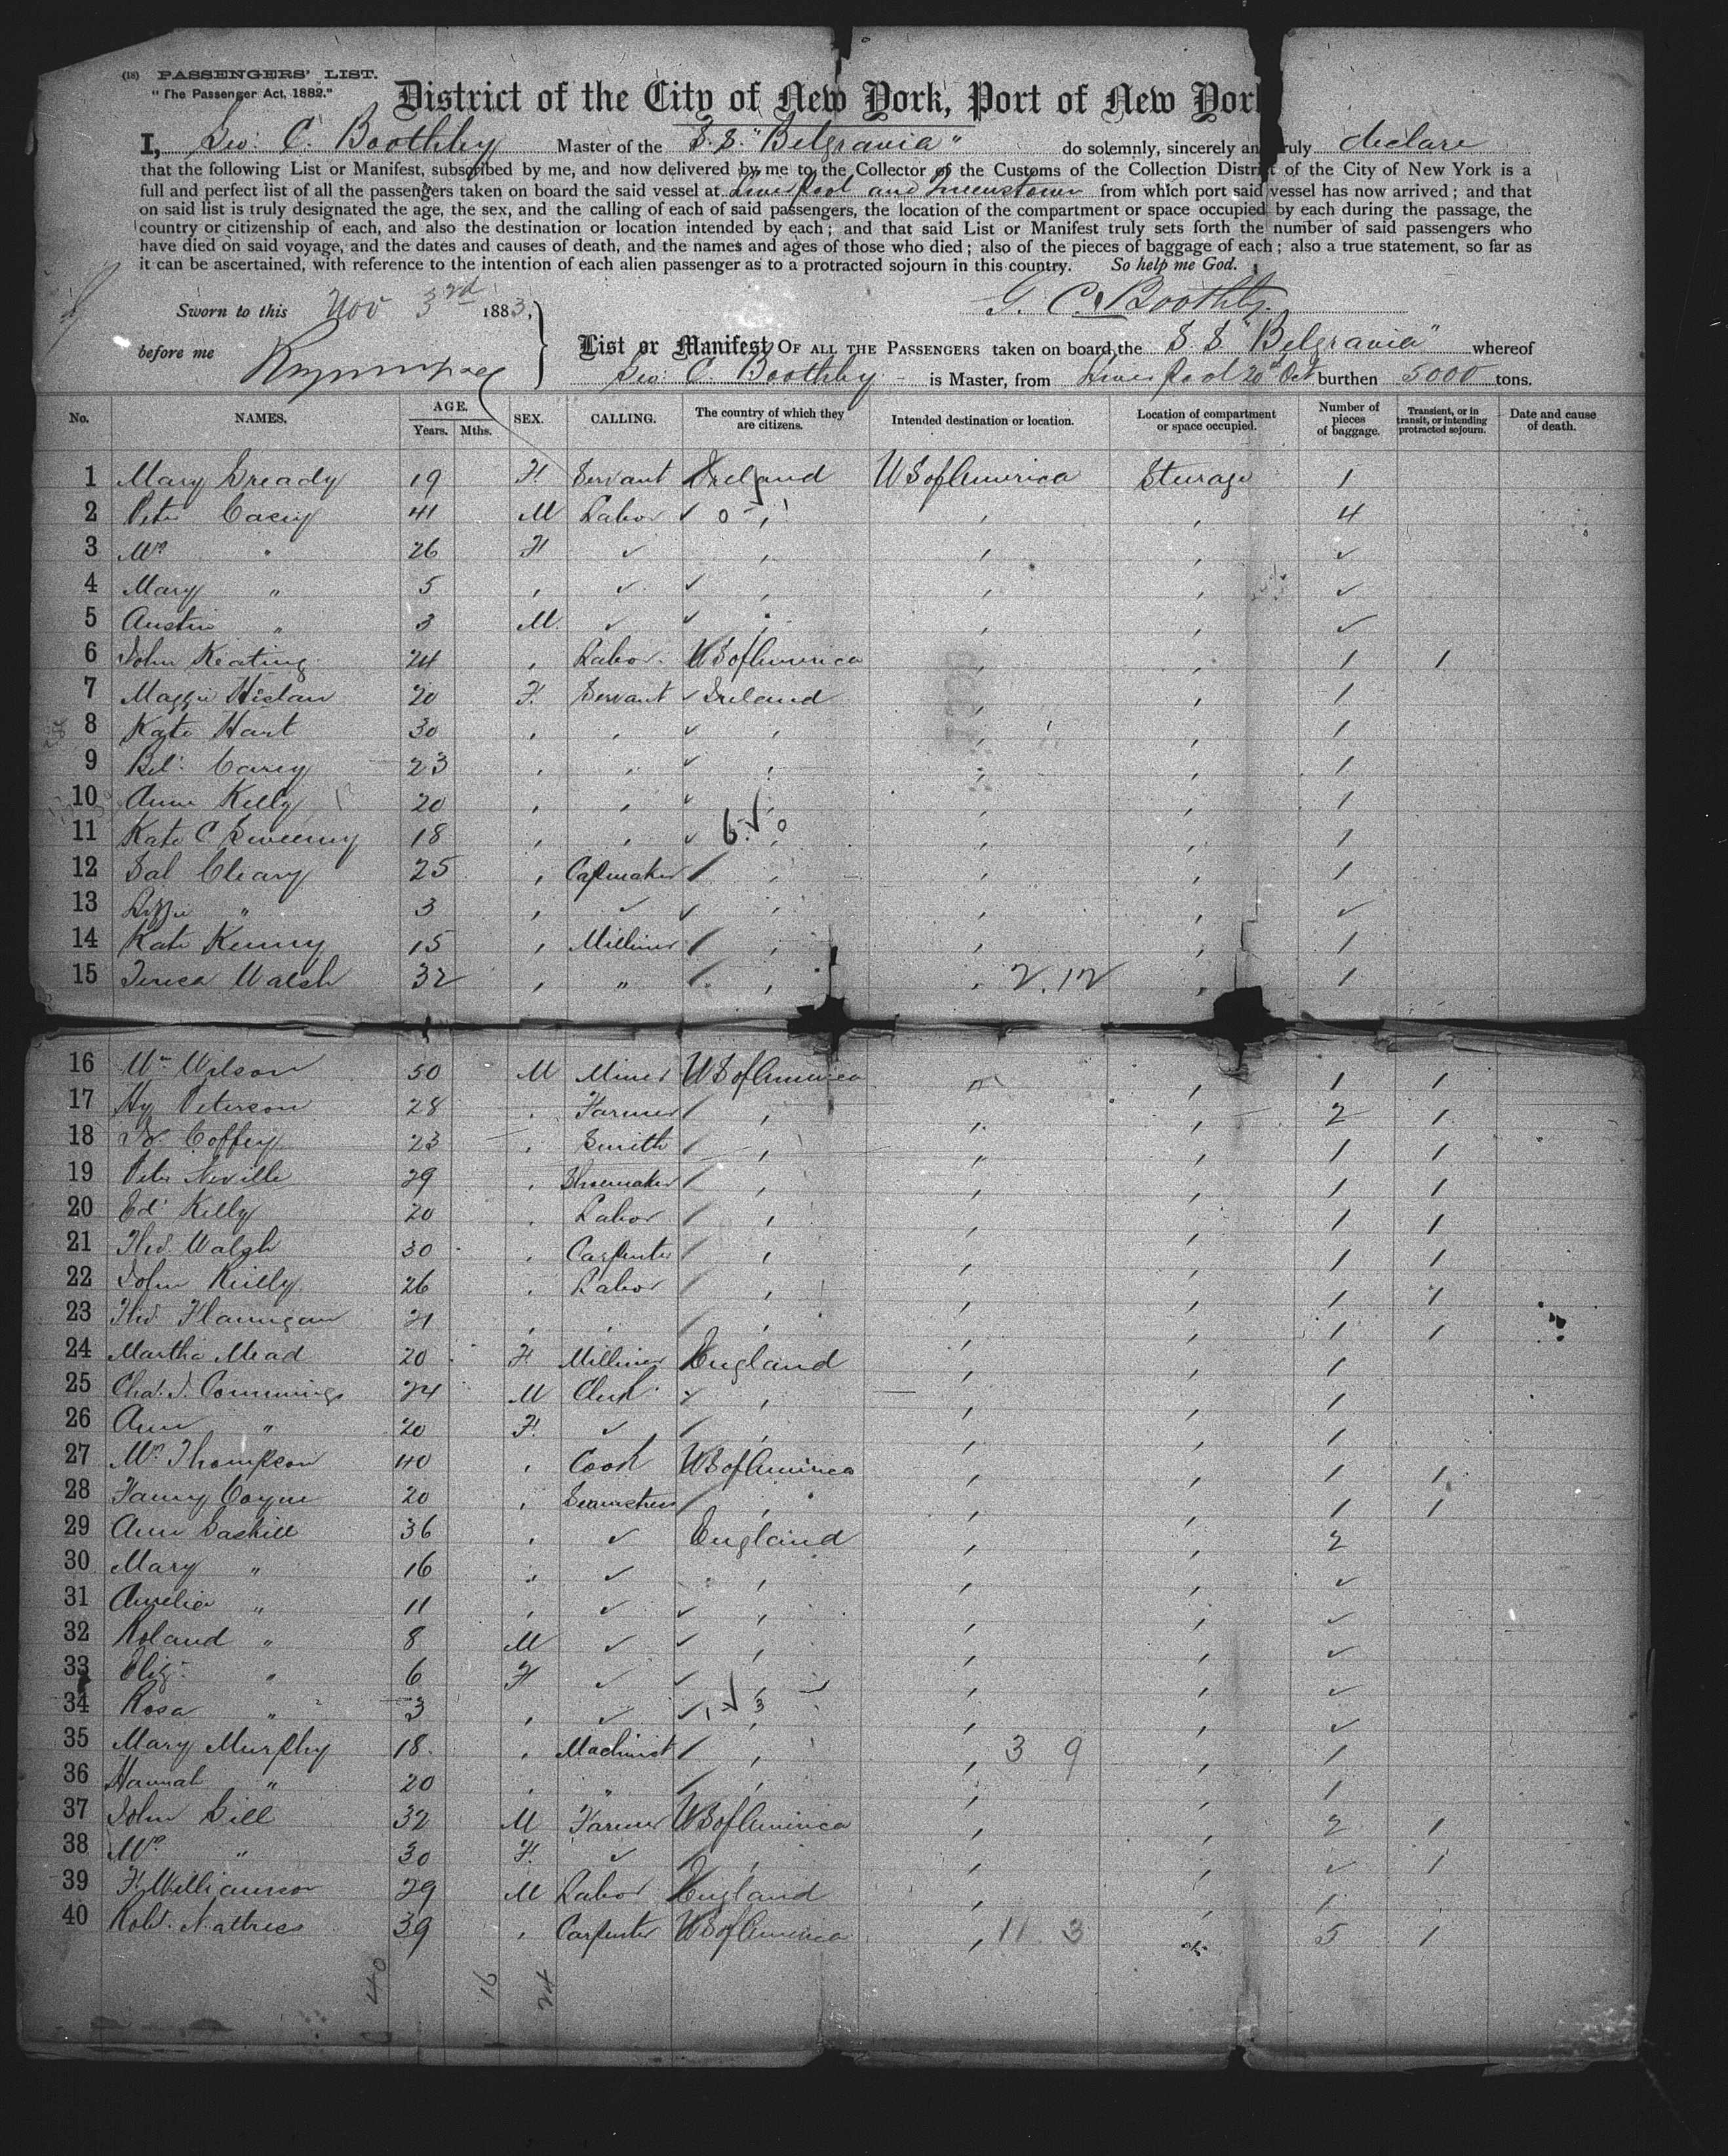 (18) PASSENGERS' LIST.
"The Passenger Act, 1882."
District of the City of New York, Port of New Yor
I, Geo: C. Boothby Master of the S.S. "Belgravia" do solemnly, sincerely an ruly declare
that the following List or Manifest, subscribed by me, and now delivered by me to the Collector of the Customs of the Collection District of the City of New York is a
full and perfect list of all the passengers taken on board the said vessel at Liverpool and Queenstown from which port said vessel has now arrived; and that
on said list is truly designated the age, the sex, and the calling of each of said passengers, the location of the compartment or space occupied by each during the passage, the
country or citizenship of each, and also the destination or location intended by each; and that said List or Manifest truly sets forth the number of said passengers who
have died on said voyage, and the dates and causes of death, and the names and ages of those who died; also of the pieces of baggage of each; also a true statement, so far as
it can be ascertained, with reference to the intention of each alien passenger as to a protracted sojourn in this country. So help me God.
Sworn to this Nov 3rd 1883, G. C. Boothby
before me
List or Manifest OF ALL THE PASSENGERS taken on board the S.S. "Belgravia" whereof
Geo: C. Boothby is Master, from Liverpool 20th Oct burthen 5000 tons.
No. NAMES. AGE. Years. Mths. SEX. CALLING. The country of which they are citizens. Intended destination or location. Location of compartment or space occupied. Number of pieces of baggage. Transient, or in transit, or intending protracted sojourn. Date and cause of death.
1 Mary Gready 19 F Servant Ireland US of America Steerage 1
2 Peter Casey 41 M Labor ✓ 0 , , , 4
3 Mrs " 26 F ✓ , , , ✓
4 Mary " 5 , ✓ ✓ , , , ✓
5 Austin " 3 M. ✓ ✓ , , , ✓
6 John Keating 24 , Labor US of America , , 1 1
7 Maggie 20 F. Servant ✓ Ireland , , 1
8 Kate Hart 30 , , ✓ , , , 1
9 Carey 23 , , ✓ , , , 1
10 Anne Kelly 20 , , ✓ , , , 1
11 Kate C Sweeney 18 , , ✓ , , , 1
12 Sal Cleary 25 , Capmaker / , , , 1
13 Lizzie " 3 , ✓ ✓ , , , ✓
14 Kate Kenny 15 , Milliner / , , , 1
15 Teresa Walsh 32 , " / , , 2.12 , 1
16 Wm Wilson 50 M Miner US of America " , 1 1
17 Hy Peterson 28 , Farmer / , , , 2 1
18 Coffey 23 , Smith / , " , 1 1
19 Peter Neville 29 , Shoemaker / , , , 1 1
20 Ed. Kelly 20 , Labor / , , , 1 1
21 Thos. Walsh 30 , Carpenter / , , , 1 1
22 John Reilly 26 , Labor / , , , 1 1
23 Thos Flannigan 21 , , / , , , 1 1
24 Martha Mead 20 F Milliner England , , 1
25 Chas. J. Commings 24 M Clerk , , , 1
26 Ann " 20 F. ✓ / , , , 1
27 Mrs Thompson 40 , Cook US of America , , 1 1
28 Fanny Coyne 20 , Seamstress / , , , 1 1
29 Ann Gaskill 36 , ✓ England , , 2
30 Mary " 16 , ✓ , , , ✓
31 Amelia " 11 , ✓ ✓ , , , ✓
32 Roland " 8 M ✓ ✓ , , , ✓
33 Eliz: " 6 F ✓ ✓ , , , ✓
34 Rosa " 3 , ✓ ✓ , , , ✓
35 Mary Murphy 18 , Machinist / , , 3 9 , 1
36 Hannah " 20 , " / , , , 1
37 John Gill 32 M Farmer US of America , , 2 1
38 Mrs " 30 F. ✓ / , , , ✓ 1
39 F. Williamson 29 M Labor England , , 1
40 Robt. Nattress 39 , Carpenter US of America , 11 3 , 5 1
40 16 24